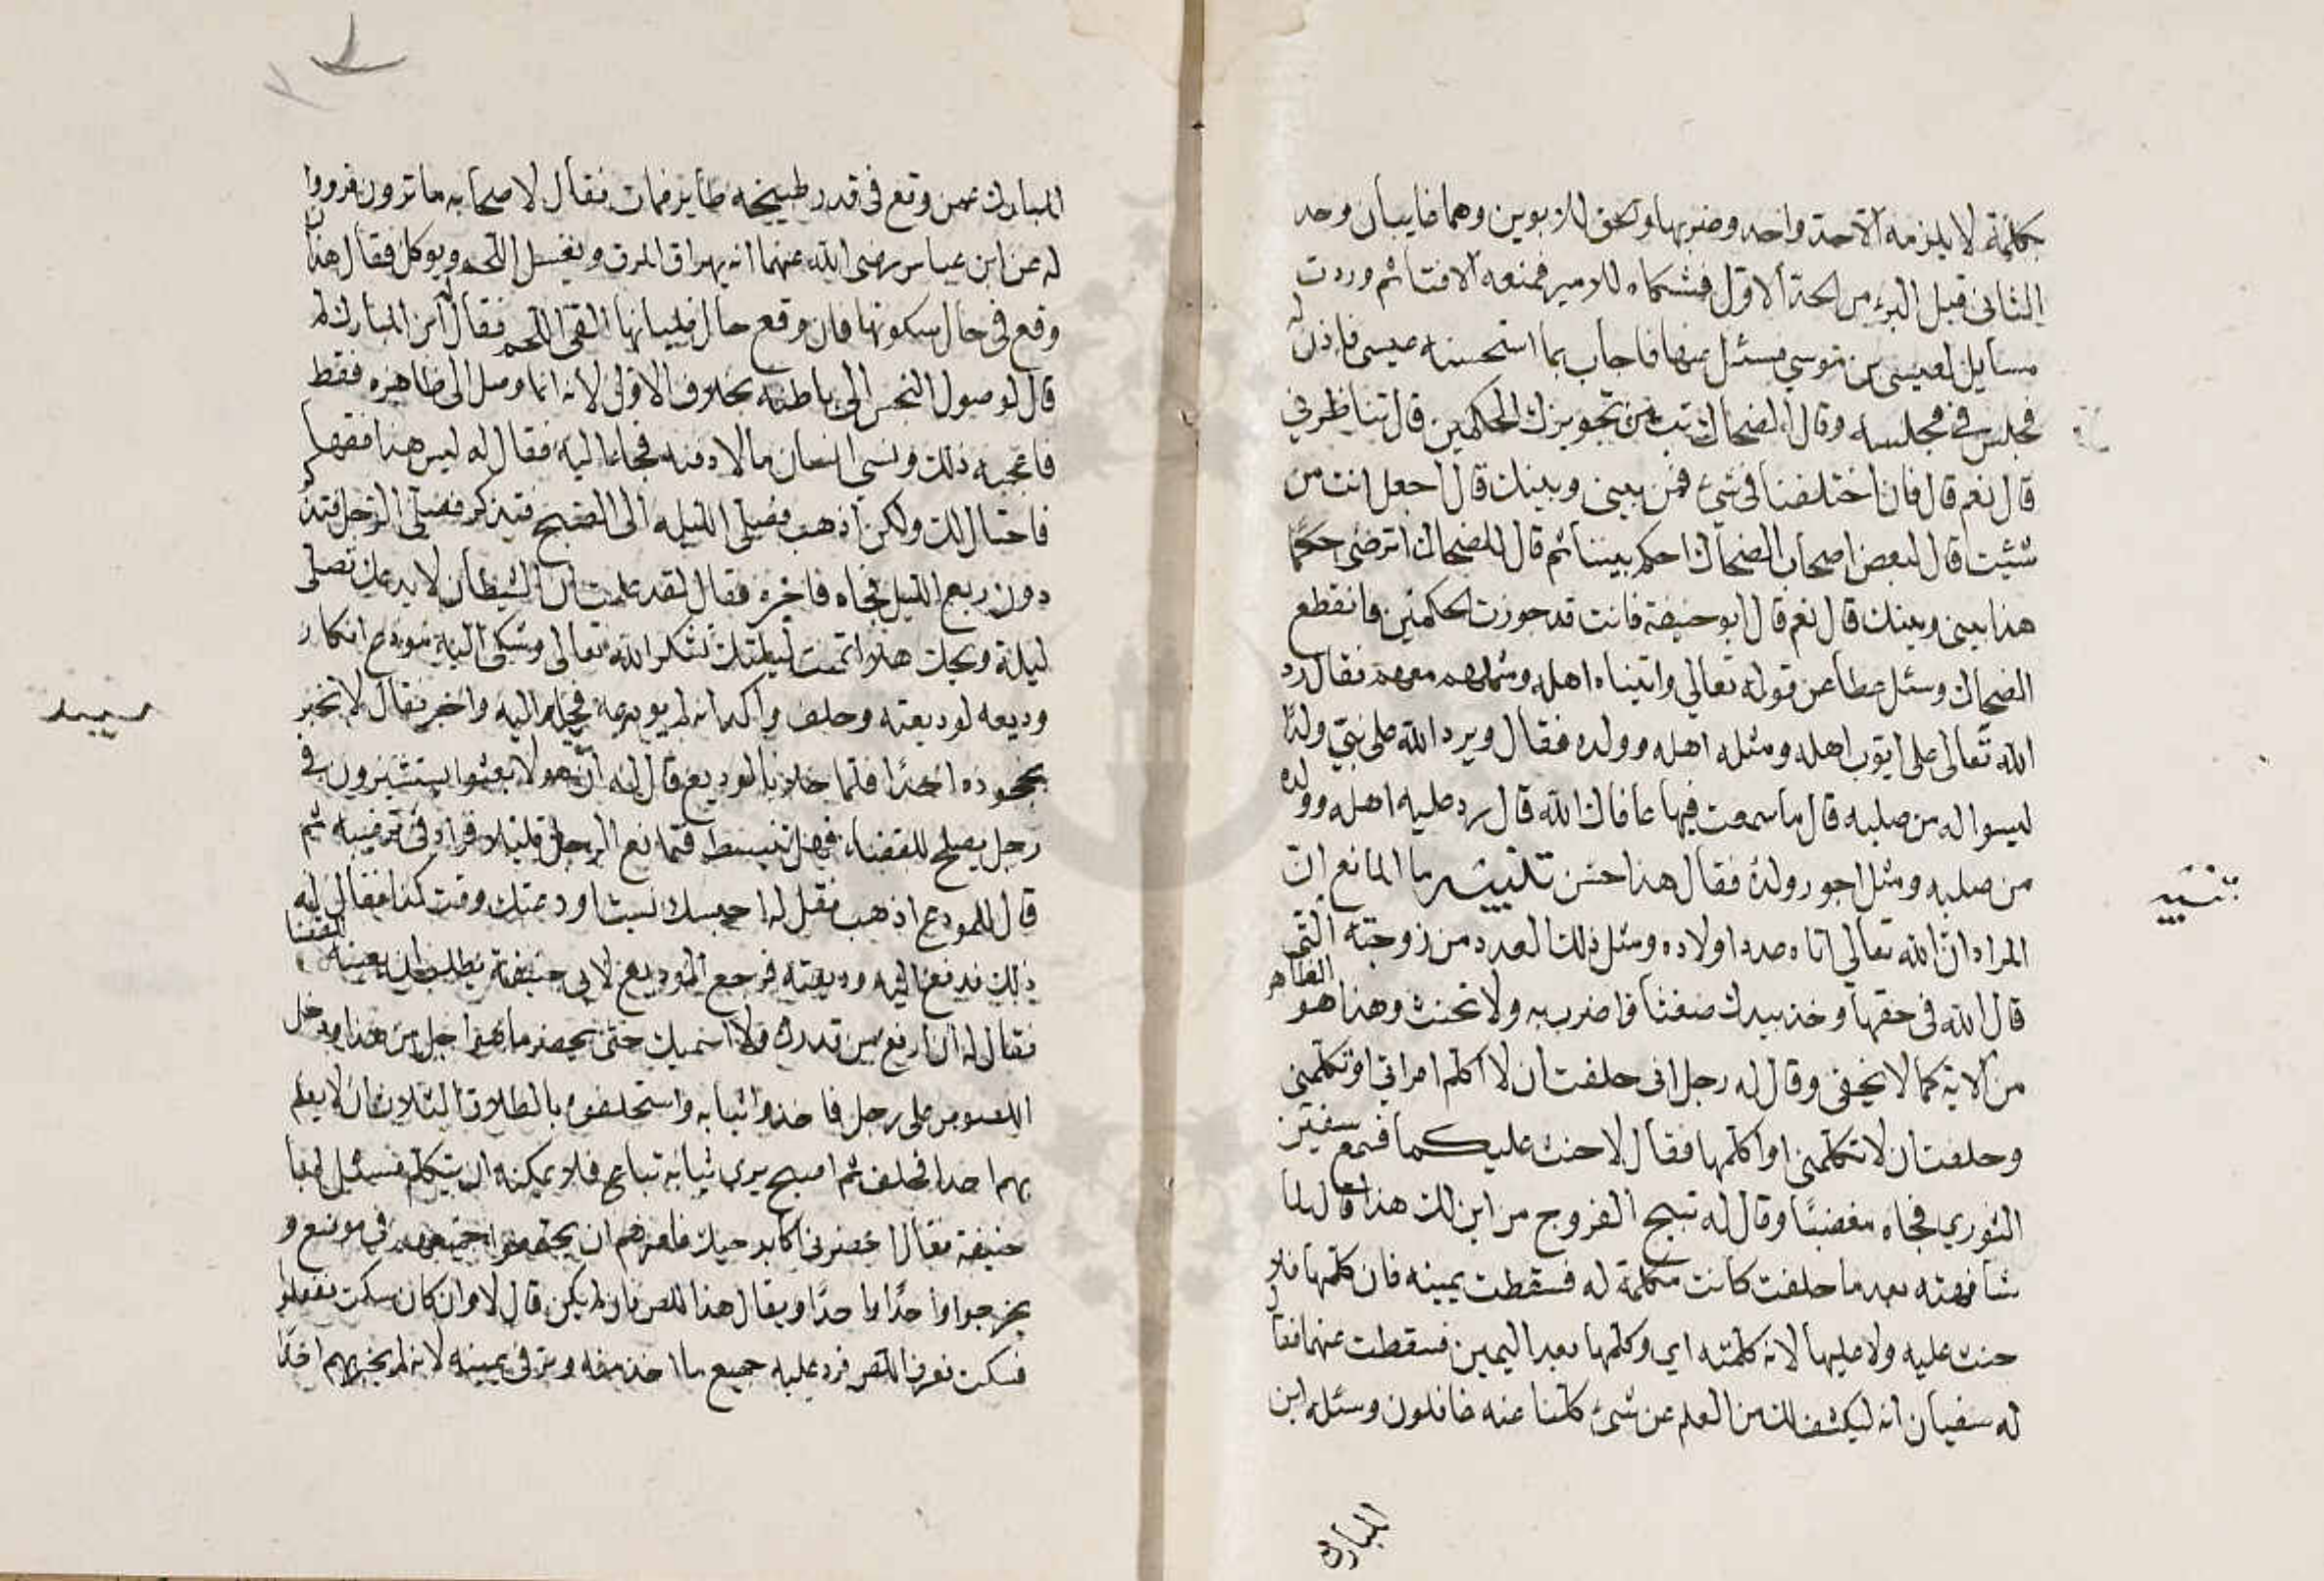 بكلمة لا يلزمه الاحد واحد وضربها والحق للابوين وهما غايبان وحد
الثانى قبل البرء من الحد الاول فشكاه للامير فمنعه الافتا ثم وردت
مسايل لعيسى بن موسي فسئل عنها فاجاب بما استحسنه عيسى فاذن له
فجلس فى مجلسه وقال الضحاك تب من تجويزك الحكمين قال تناظرنى
قال نعم قال فان اختلفنا فى شئ فمن بينى وبينك قال اجعل انت من
شئت قال لبعض اصحاب الضحاك احكم بيننا ثم قال للضحاك اترضى حكمًا
هذا بينى وبينك قال نعم قال ابو حنيفة فانت قد جوزت الحكمين فانقطع
الضحاك وسئل عطا عن قوله تعالي واتيناه اهله ومثلهم معهم فقال رد
الله تعالى على ايوب اهله ومثله اهله وولده فقال ويرد الله على نبى ولدًا
ليسوا له من صلبه قال ما سمعت فيها عافاك الله قال رد عليه اهله وولده
من صلبه ومثل اجور ولده فقال هذا حسن تنبيه ما المانع ان
المراد ان الله تعالي اتاه عدد اولاده ومثل ذلك العدد من زوجته التى
قال الله فى حقها وخذ بيدك ضغثا فاضرب به ولا تحنث وهذا هو الظاهر
من الاية كما لا يخفى وقال له رجل انى حلفت ان لا اكلم امراتي او تكلمنى
وحلفت ان لا تكلمنى او اكلمها فقال لا حنث عليكما فسمع سفين
الثوري فجاه مغضبًا وقال له تبيح الفروج من اين لك هذا قال لما
شافهته بعد ما حلفت كانت مكلمة له فسقطت يمينه فان كلمها فلا
حنث عليه ولا عليها لانه كلمته اي وكلمها بعد اليمين فسقطت عنهما فقال
له سفيان انه ليكشف لك من العلم عن شئ كلنا عنه غافلون وسئله ابن
المبارك
تنبيه
المبارك عمن وقع فى قدر طبيخه طاير فمات فقال لاصحابه ما ترون فرووا
له عن ابن عباس رضى الله عنهما انه يهراق المرق ويغسل اللحم ويوكل فقال هذا ان
وقع فى حال سكونها فان وقع حال غليانها القى اللحم فقال ابن المبارك لم
قال لوصول النجس الى باطنه بخلاف الاولى لانه انما وصل الى ظاهره فقط
فاعجبه ذلك ونسي انسان مالا دفنه فجاء اليه فقال له ليس هذا فقها
فاحتال لك ولكن اذهب فصلى الليله الى الصبح فتذكر فصلى الرجل فتذكر
دون ربع الليل فجاه فاخبره فقال لقد علمت ان الشيطان لا يدعك تصلى
ليلة ويحك هلا اتممت ليلتك شكر الله تعالى وشكى اليه مودع انكار
وديعه لوديعته وحلف واكد انه لم يودعه فجاء اليه واخبر فقال لا تخبر
بجحوده احدًا فلما خلا بالوديع قال له ان هولا بعثوا يستشيرون فى
رجل يصلح للقضاء فهل تنبسط فتمانع الرجل قليلا فزاد فى ترغيبه ثم
قال للمودع اذهب فقل له احسبك نسيت اودعتك وقت كذا فقال له
ذلك فدفع اليه وديعته فرجع الوديع لابى حنيفة يطلب ان يعينه للقضا
فقال له ان ارفع من قدرك ولا اسميك حتى يحضر ما هو اجل من هذا ودخل
اللصوص على رجل فاخذوا ثيابه واستحلفوه بالطلاق الثلاث ان لا يعلم
بهم احدا فحلف ثم اصبح يرى ثيابه تباع فلا يمكنه ان يتكلم فسئل ابا
حنيفة فقال احضرنى اكابر حيك فامرهم ان يجتمعوا جميعهم فى موضع و
يخرجوا واحدًا واحدًا ويقال هذا اللص فان لم يكن قال لا وان كان سكت ففعلوا
فسكت فعرف اللص فرد عليه جميع ما اخذ منه وبر فى يمينه لانه لم يخبر بهم احدًا